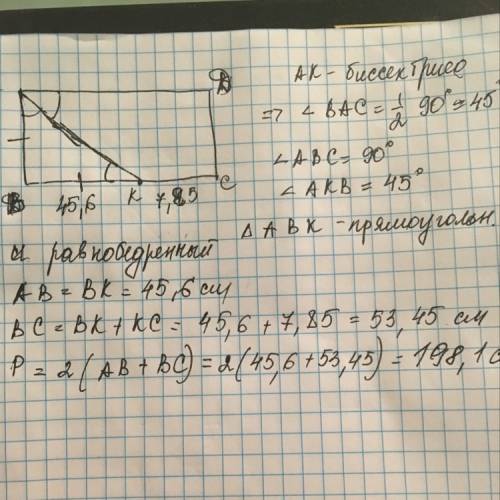 D
B
45,6
K
7,85
C
AK - биссектриса
=> ∠ BAC = 1/2 90° = 45°
∠ABC = 90°
∠ AKB = 45°
△ ABK - прямоугольн.
и равнобедренный
AB = BK = 45,6 см
BC = BK + KC = 45,6 + 7,85 = 53,45 см
P = 2 (AB + BC) = 2 (45,6 + 53,45) = 198,1 с